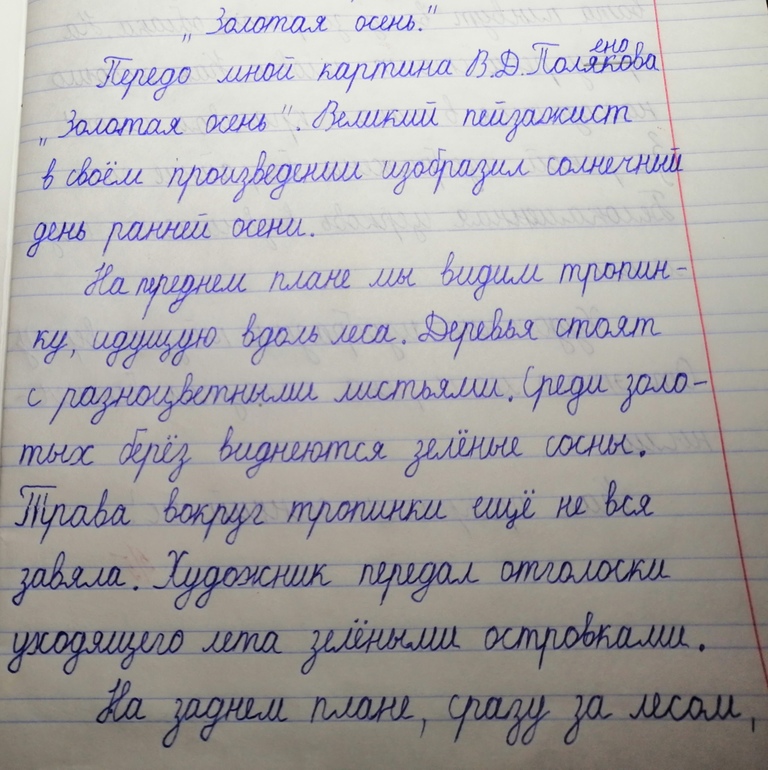 „Золотая осень."
Передо мной картина В.Д. Поляенова
„Золотая осень". Великий пейзажист
в своём произведении изобразил солнечный
день ранней осени.
На переднем плане мы видим тропин-
ку, идущую вдоль леса. Деревья стоят
с разноцветными листьями. Среди золо-
тых берёз виднеются зелёные сосны.
Трава вокруг тропинки ещё не вся
завяла. Художник передал отголоски
уходящего лета зелёными островками.
На заднем плане, сразу за лесом,